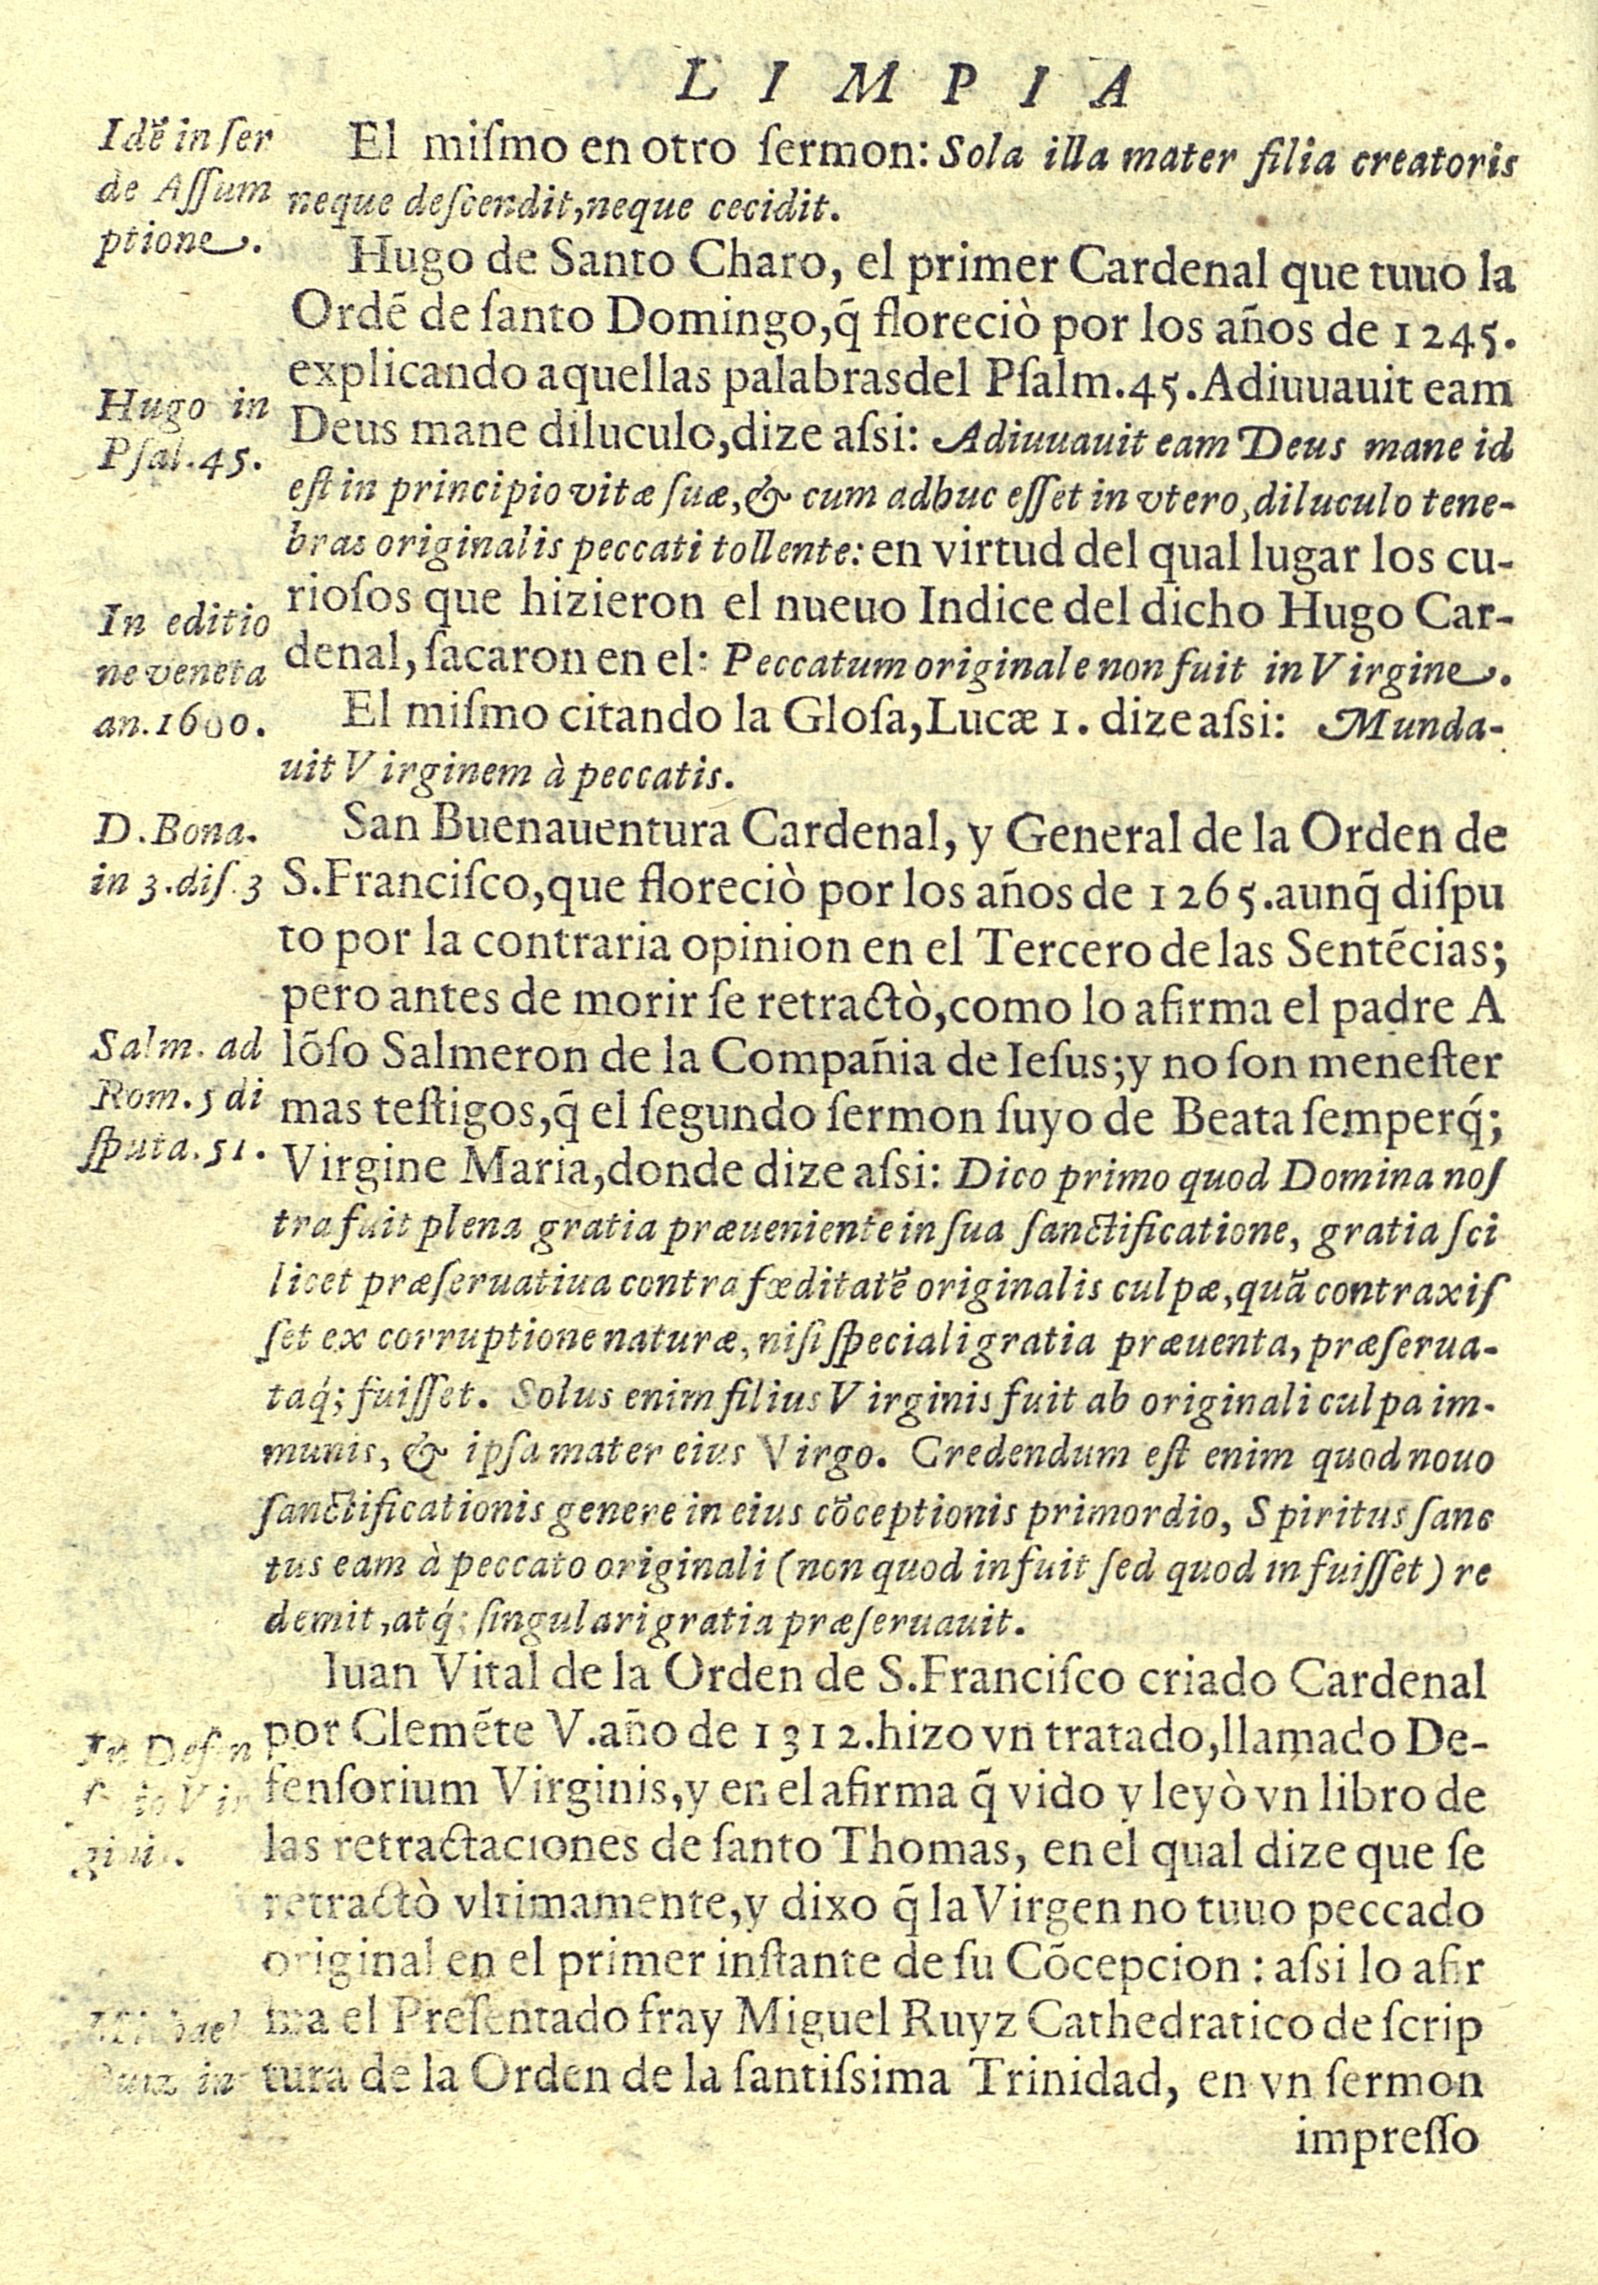 LIMPIA
Idẽ in ſer
de Aſſum
ptione.
El miſmo en otro ſermon: Sola illa mater filia creatoris
neque deſcendit, neque cecidit.
Hugo de Santo Charo, el primer Cardenal que tuuo la
Ordẽ de ſanto Domingo, q̃ floreciò por los años de 1245.
explicando aquellas palabras del Pſalm. 45. Adiuuauit eam
Hugo in
Pſal. 45.
Deus mane diluculo, dize aſsi: Adiuuauit eam Deus mane id
eſt in principio vitæ ſuæ, & cum adhuc eſſet in vtero, diluculo tene-
bras originalis peccati tollente: en virtud del qual lugar los cu-
In editio
ne veneta
an. 1600.
rioſos que hizieron el nueuo Indice del dicho Hugo Car-
denal, ſacaron en el: Peccatum originale non fuit in Virgine.
El miſmo citando la Gloſa, Lucæ 1. dize aſsi: Munda-
uit Virginem à peccatis.
D. Bona.
in 3. diſ. 3
San Buenauentura Cardenal, y General de la Orden de
S. Franciſco, que floreciò por los años de 1265. aunq̃ diſpu
to por la contraria opinion en el Tercero de las Sentẽcias;
pero antes de morir ſe retractò, como lo afirma el padre A
Salm. ad
Rom. 5 di
ſputa. 51.
lõſo Salmeron de la Compañia de Ieſus; y no ſon meneſter
mas teſtigos, q̃ el ſegundo ſermon ſuyo de Beata ſemperq́;
Virgine Maria, donde dize aſsi: Dico primo quod Domina noſ
tra fuit plena gratia præueniente in ſua ſanctificatione, gratia ſci
licet præſeruatiua contra fœditatẽ originalis culpæ, quã contraxiſ
ſet ex corruptione naturæ, niſi ſpeciali gratia præuenta, præſerua-
taq́; fuiſſet. Solus enim filius Virginis fuit ab originali culpa im-
munis, & ipſa mater eius Virgo. Credendum eſt enim quod nouo
ſanctificationis genere in eius cõceptionis primordio, Spiritus ſanc
tus eam à peccato originali (non quod infuit ſed quod infuiſſet) re
demit, atq́; ſingulari gratia præſeruauit.
Iuan Vital de la Orden de S. Franciſco criado Cardenal
In Defen
por Clemẽte V. año de 1312. hizo vn tratado, llamado De-
fenſorium Virginis, y en el afirma q̃ vido y leyò vn libro de
las retractaciones de ſanto Thomas, en el qual dize que ſe
retractò vltimamente, y dixo q̃ la Virgen no tuuo peccado
original en el primer inſtante de ſu Cõcepcion: aſsi lo afir
ma el Preſentado fray Miguel Ruyz Cathedratico de ſcrip
tura de la Orden de la ſantiſsima Trinidad, en vn ſermon
impreſſo